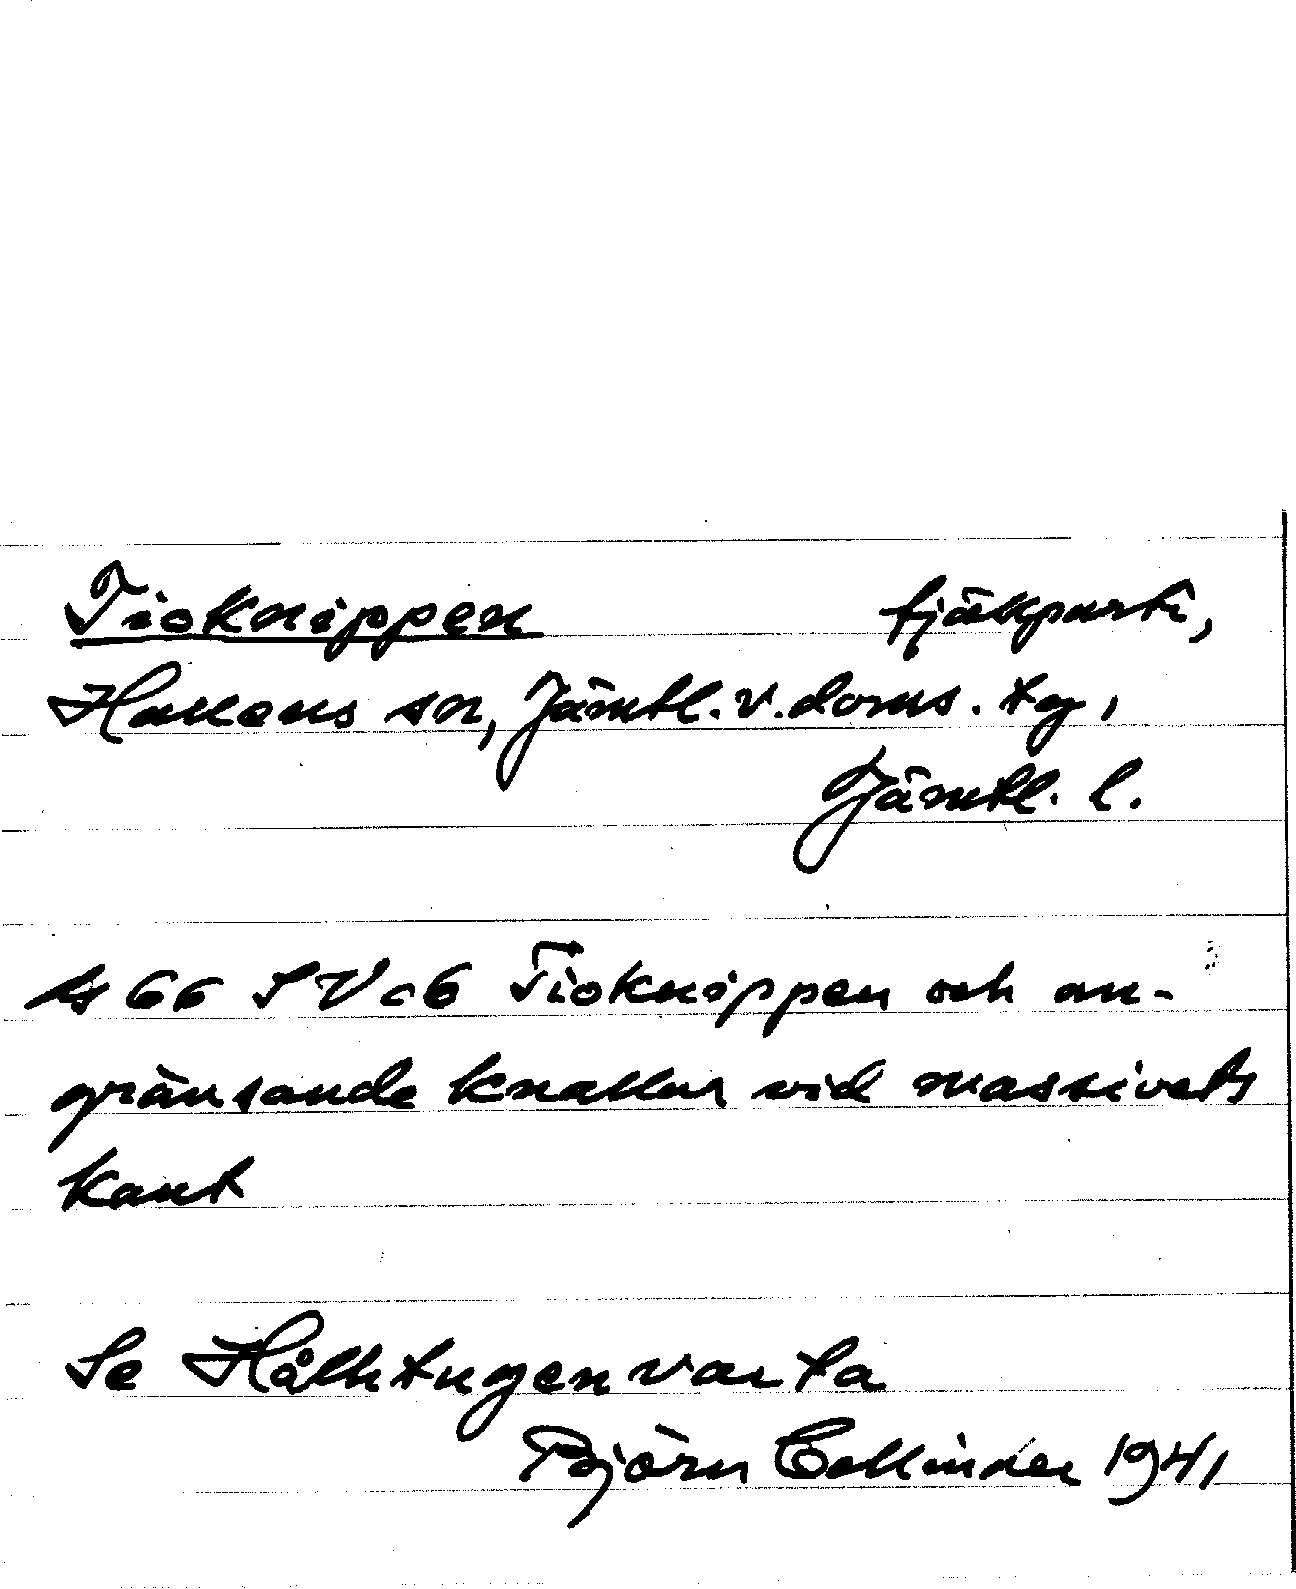 Tioknippen fjällparti,
Hallens sn, Jämtl. v. doms. tg,
Jämtl. l.
66 SV c6 Tioknippen och an-
gränsande knallar vid massivets
kant
Se Hålhtugenvarta
Björn Collinder 1941